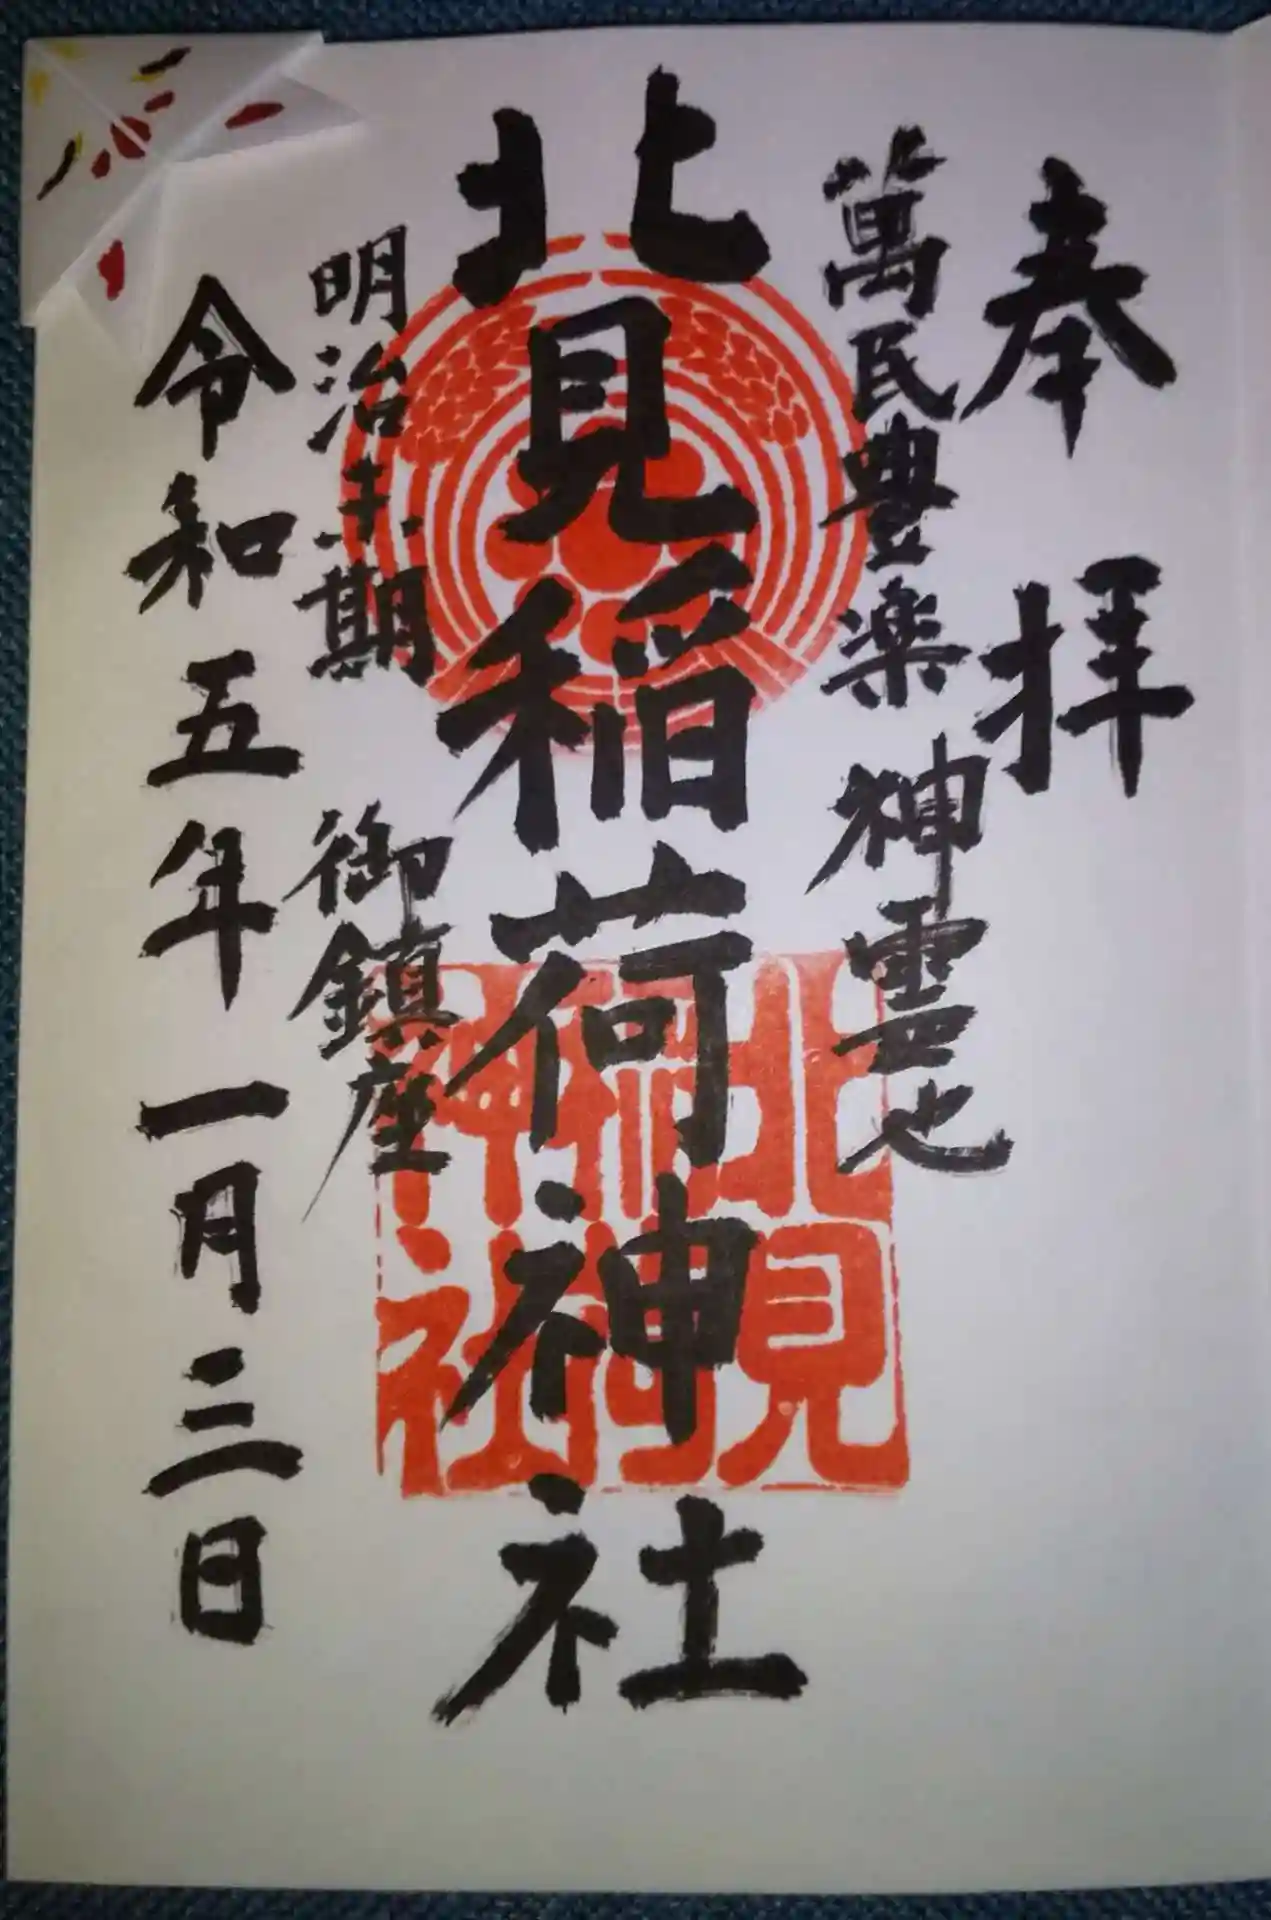 奉拝
萬民豊楽 神霊也
北見稲荷神社
明治末期 御鎮座
令和五年一月三日
北見稲荷神社